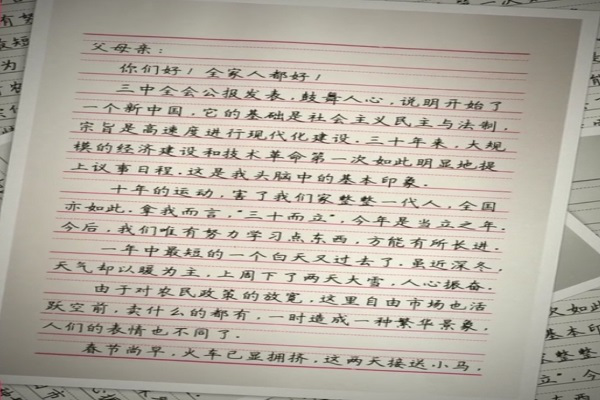 父母亲：
你们好！全家人都好！
三中全会公报发表，鼓舞人心，说明开始了
一个新中国，它的基础是社会主义民主与法制，
宗旨是高速度进行现代化建设。三十年来，大规
模的经济建设和技术革命第一次如此明显地提
上议事日程。这是我头脑中的基本印象。
十年的运动，害了我们家整整一代人，全国
亦如此。拿我而言，"三十而立"，今年是当立之年。
今后，我们唯有努力学习点东西，方能有所长进。
一年中最短的一个白天又过去了，虽近深冬，
天气却以暖为主，上周下了两天大雪，人心振奋。
由于对农民政策的放宽，这里自由市场也活
跃空前，卖什么的都有，一时造成一种繁华景象，
人们的表情也不同了。
春节尚早，火车已显拥挤，这两天接送小马，